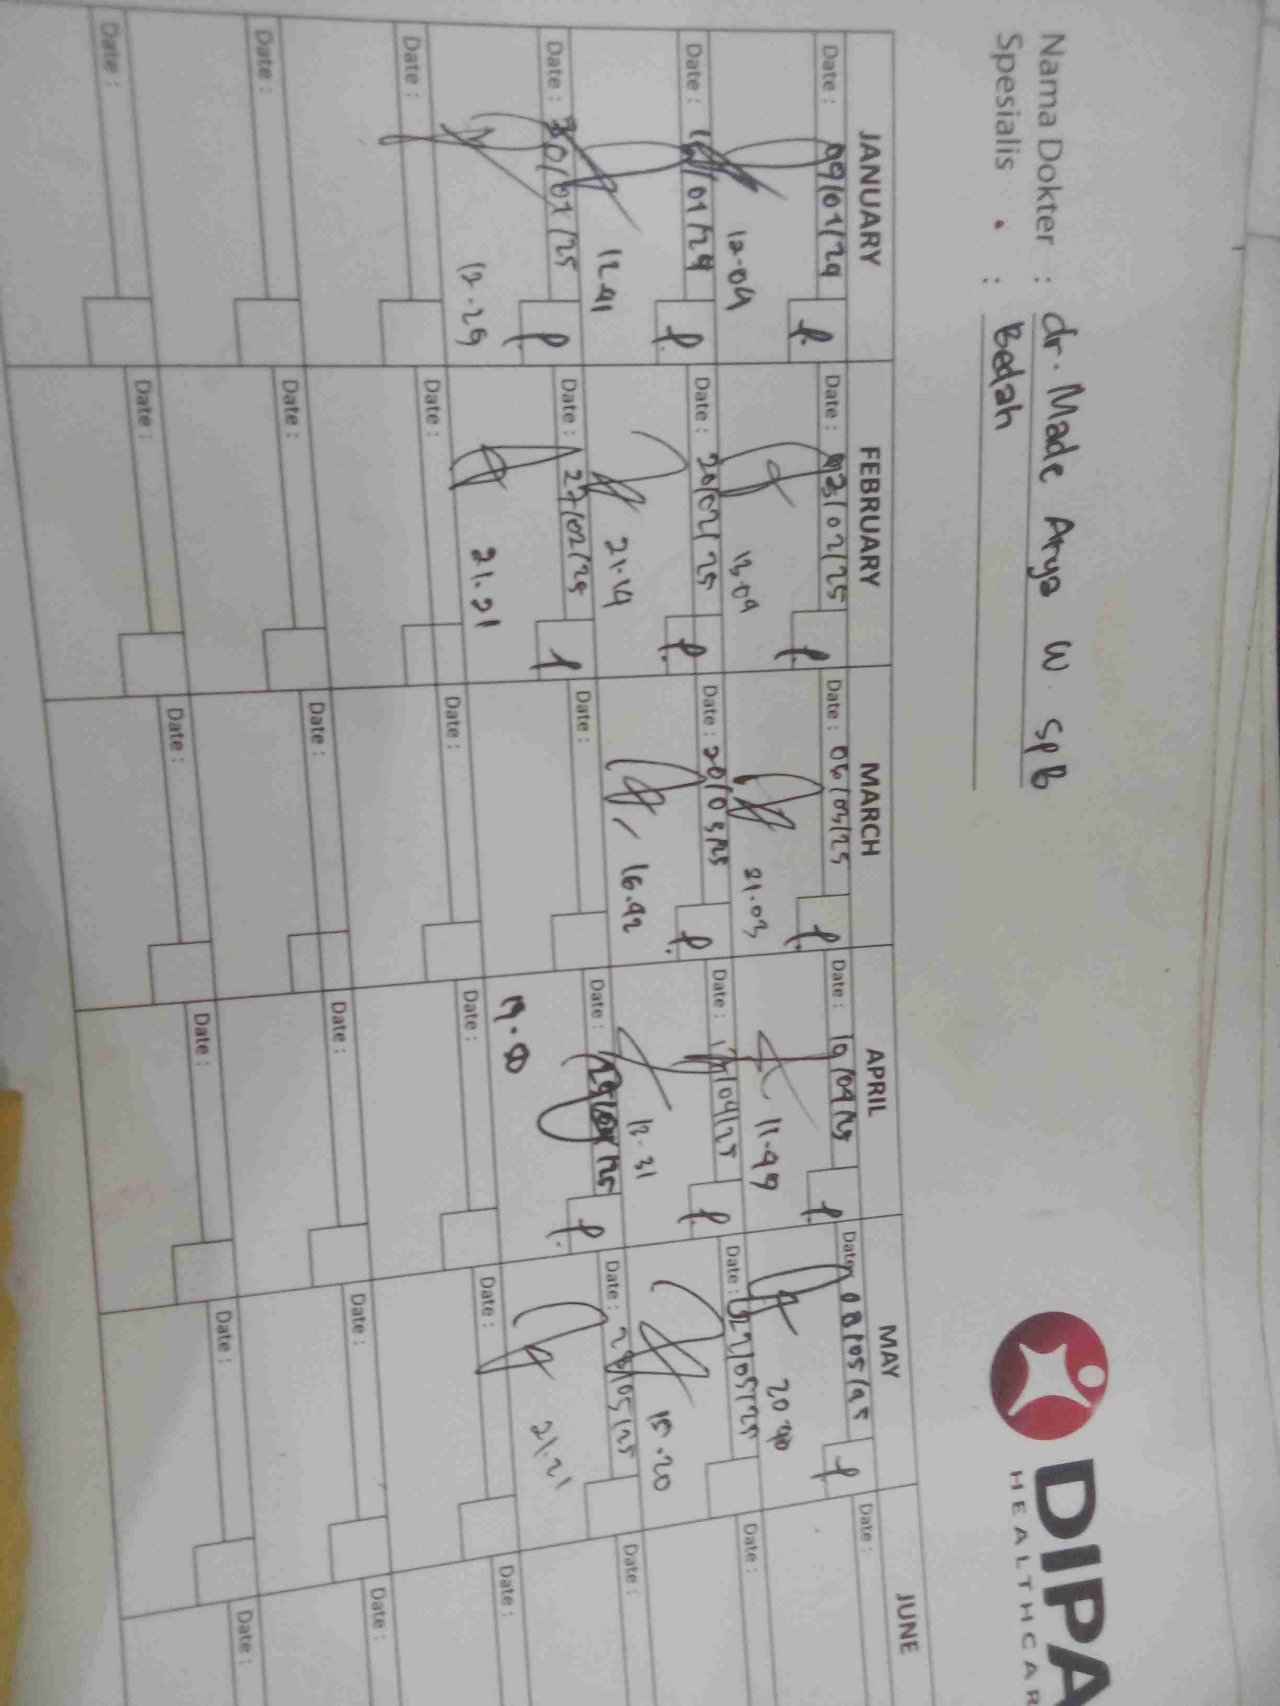 Nama Dokter : dr. Made Arya W. SpB
Spesialis : Bedah
DIPA
HEALTHCAR
JANUARY FEBRUARY MARCH APRIL MAY JUNE
Date : 09/01/24 P. Date : 03/02/25 P. Date : 06/03/25 P. Date : 10/04/25 P. Date 08/05/25 P Date :
12.04 13.09 21.03 11.49 20.40
Date : 16/01/24 P. Date : 20/02/25 P. Date : 20/03/25 P. Date : 17/04/25 P. Date : 22/05/25 Date :
12.41 21.14 16.42 12.31 15.20
Date : 30/01/25 P. Date : 27/02/25 P Date : Date : P. Date : 28/05/25 Date :
12.29 21.21 21.21
Date : Date : Date : Date : Date : Date :
Date : Date : Date : Date : Date : Date :
Date : Date : Date : Date : Date : Date :